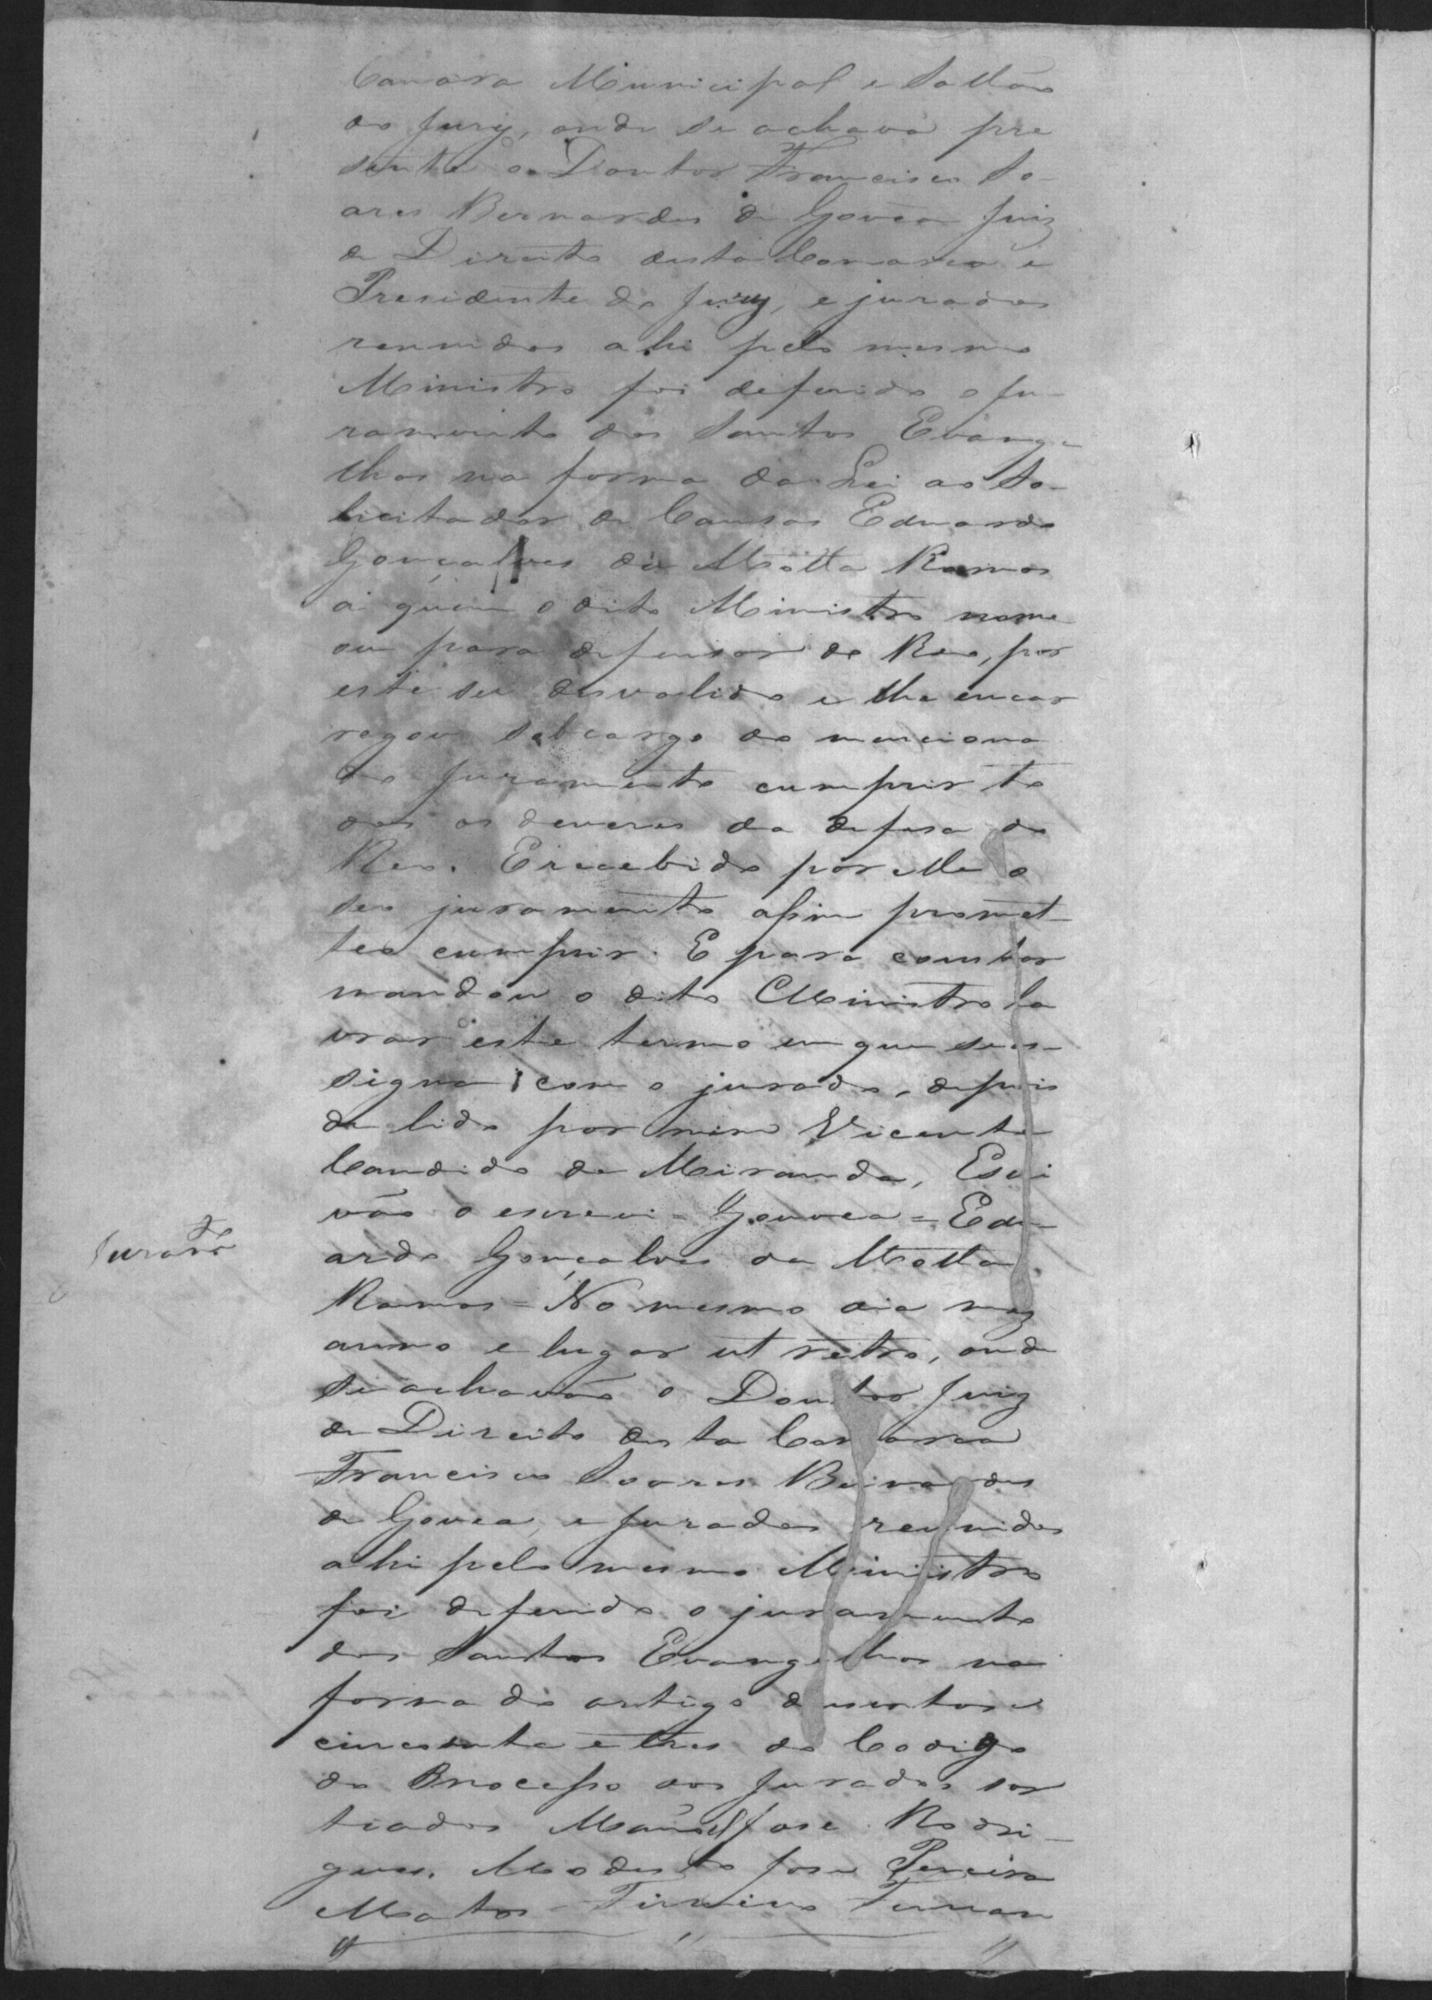 Camara Municipal e Sallão
do Jury, onde se achava pre
sente o Doutor Francisco So-
ares Bernardes de Gouvea Juiz
de Direito desta Comarca e
Presidente do Jury, e jurados
reunidos ahi pelo mesmo
Ministro foi deferido o Ju-
ramento dos Santos Evange
lhos na forma da Lei ao So-
licitador de Causas Eduardo
Gonçalves da Motta Ramos
a quem o dito Ministro nome
ou para defensor do Reo, por
este ser desvalido e lhe encar
regou sob cargo do menciona
do juramento cumprir to
dos os deveres da defesa do
Reo. E recebido por elle o
seo juramento assim promet-
teo cumprir. E para constar
mandou o dito Ministro la
vrar este termo em que se as-
signa com o jurado, depois
de lido por mim Vicente
Candido de Miranda, Escri
vão o escrevi = Gouvea = Edu-
ardo Gonçalves da Motta
Jurado
Ramos = No mesmo dia mez
anno e lugar ut retro, onde
se achavão o Doutor Juiz
de Direito desta Comarca
Francisco Soares Bernardes
de Gouvea, e jurados reunidos
ahi pelo mesmo Ministro
foi deferido o juramento
dos Santos Evangelhos na
forma do artigo dusentos e
cincoenta e tres do Codigo
do Processo aos Jurados sor
tiados Manoel José Rodri-
gues. Modesto José Pereira
Mattos - Firmino Fernan